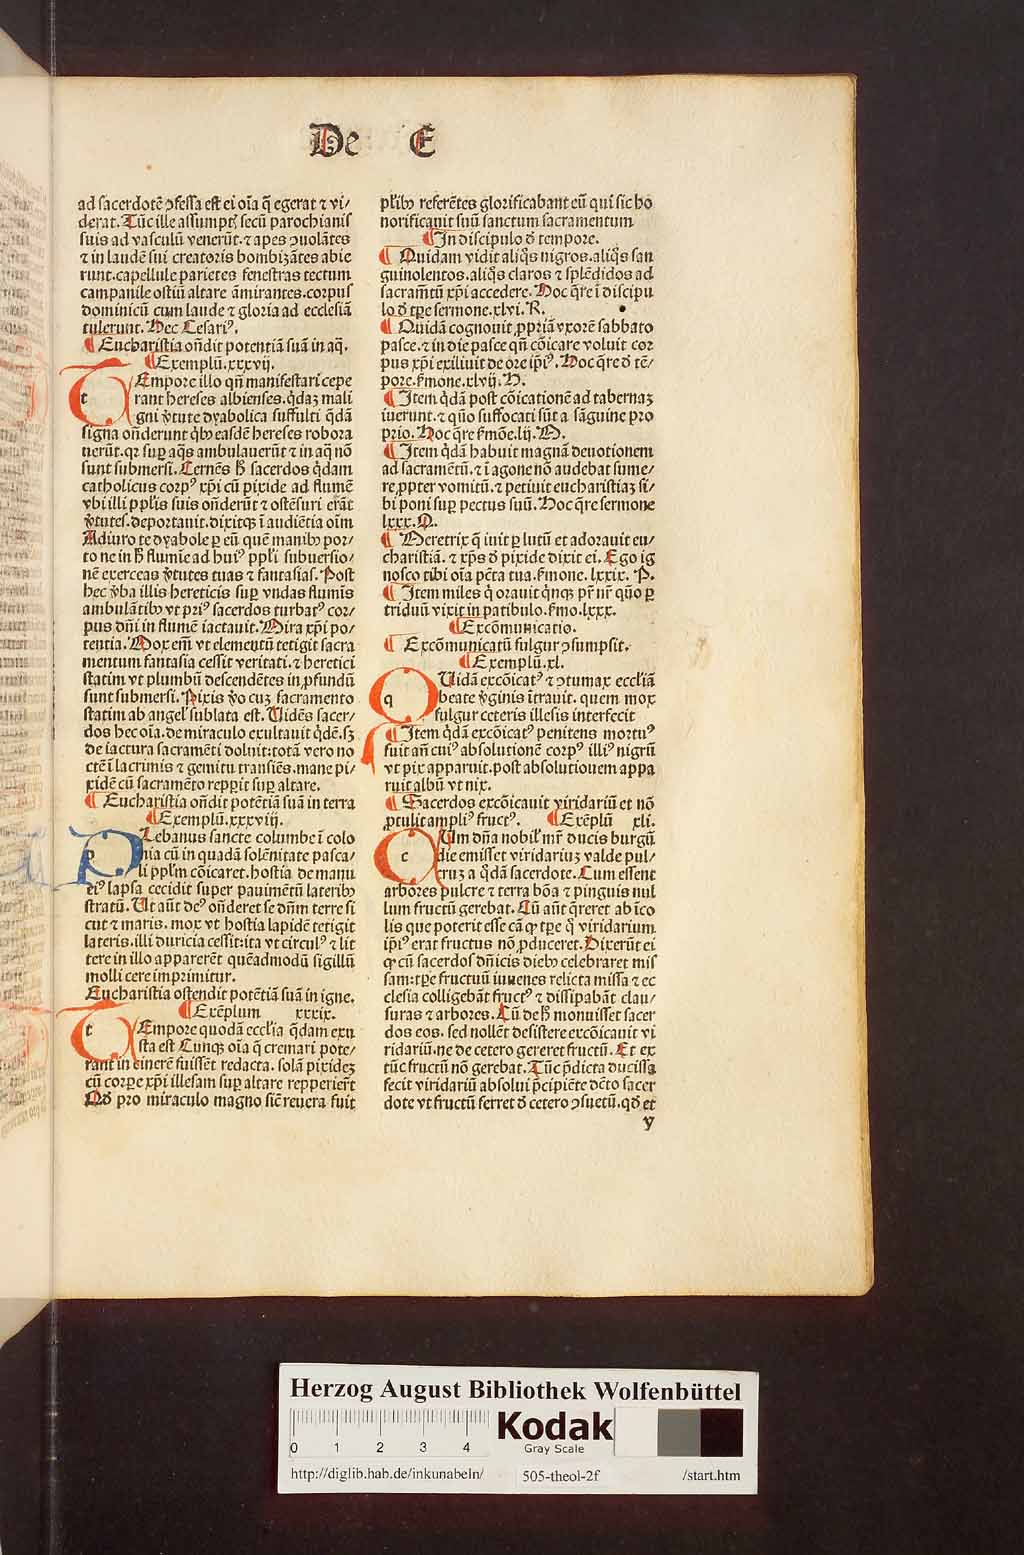 De E
ad sacerdotē ꝯfessa est ei oīa q̄ egerat ⁊ vi⸗
derat. Tūc ille assumptꝭ secū parochianis
suis ad vasculū venerūt. ⁊ apes ꝯuolātes
⁊ in laudē sui creatoris bombizātes abie
runt. capellule parietes fenestras tectum
campanile ostiū altare āmirantes. corpus
dominicū cum laude ⁊ gloria ad ecclesiā
tulerunt. Hec Cesariꝰ.
¶ Eucharistia oñdit potentiā suā in aq̄.
¶ Exemplū. xxxvij.
tEmpore illo qñ manifestari cepe
rant hereses albienses. q̄daꝫ mali
gni v̓tute dyabolica suffulti q̄dā
signa oñderunt qͥbꝰ easdē hereses robora
uerūt. qꝛ suꝑ aqͣs ambulauerūt ⁊ in aq̄ nō
sunt submersi. Cernēs h̓ sacerdos qͥdam
catholicus corpꝰ xp̄i cū pixide ad flumē
vbi illi pp̄lis suis oñderūt ⁊ ostēsuri erāt
v̓tutes. deportauit. dixitqꝫ ī audiētia oīm
Adiuro te dyabole ꝑ eū quē manibꝰ por⸗
to ne in h̓ flumīe ad huiꝰ pp̄li subuersio⸗
nē exerceas v̓tutes tuas ⁊ fantasias. Post
hec v̓ba illis hereticis suꝑ vndas flumīs
ambulātibꝰ vt priꝰ sacerdos turbatꝰ cor⸗
pus dn̄i in flumē iactauit. Mira xp̄i po⸗
tentia. Mox em̄ vt elementū tetigit sacra
mentum fantasia cessit veritati. ⁊ heretici
statim vt plumbū descendētes in ꝓfundū
sunt submersi. Pixis v̓o cuꝫ sacramento
statim ab angelꝭ sublata est. Uidēs sacer⸗
dos hec oīa. de miraculo exultauit qͥdē. sꝫ
de iactura sacramēti doluit: totā vero no
ctē ī lacrimis ⁊ gemitu transiēs. mane pi⸗
xidē cū sacramēto repꝑit suꝑ altare.
¶ Eucharistia oñdit potētiā suā in terra
¶ Exemplū. xxxviij.
pLebanus sancte columbe ī colo
nia cū in quadā solēnitate pasca⸗
li pp̄lm cōicaret. hostia de manu
eiꝰ lapsa cecidit super pauimētū lateribꝰ
stratū. Ut aūt deꝰ oñderet se dn̄m terre si
cut ⁊ maris. mox vt hostia lapidē tetigit
lateris. illi duricia cessit: ita vt circulꝰ ⁊ lit
tere in illo apparerēt quēadmodū sigillū
molli cere imprimitur.
Eucharistia ostendit potētiā suā in igne.
¶ Exēplum xxxix.
tEmpore quodā eccl̓ia q̄dam exu
sta est Cunqꝫ oīa q̄ cremari pote⸗
rant in cinerē fuissēt redacta. solā pixideꝫ
cū corꝑe xp̄i illesam suꝑ altare repperier̄t
Qd̓ pro miraculo magno sic̄ reuera fuit
pl̓ribꝰ referētes glorificabant eū qui sic ho
norificauit suū sanctum sacramentum
¶ In discipulo d̓ tempore.
¶ Quidam vidit aliqͦs nigros. aliqͦs san
guinolentos. aliqͦs claros ⁊ splēdidos ad
sacram̄tū xp̄i accedere. Hoc q̄re ī discipu
lo d̓ tꝑe sermone. xlvi. R.
¶ Quidā cognouit ꝓpriā vxorē sabbato
pasce. ⁊ in die pasce qñ cōicare voluit cor
pus xp̄i exiliuit de ore ip̄iꝰ. Hoc q̄re d̓ tē⸗
pore. s̓mone. xlvij. H.
¶ Item qͥdā post cōicationē ad tabernaꝫ
iuerunt. ⁊ quō suffocati sūt a sāguine pro
prio. Hoc q̄re s̓mōe. lij. M.
¶ Item qͥdā habuit magnā deuotionem
ad sacramētū. ⁊ ī agone nō audebat sume⸗
re ꝓpter vomitū. ⁊ petiuit eucharistiaꝫ si⸗
bi poni suꝑ pectus suū. Hoc q̄re sermone
lxxx. Q.
¶ Meretrix q̄ iuit ꝑ lutū et adorauit eu⸗
charistiā. ⁊ xp̄s d̓ pixide dixit ei. Ego ig
nosco tibi oīa pc̄ta tua. s̓mone. lxxix. P.
¶ Item miles qͥ orauit qͥnqꝫ pr̄ nr̄ quō ꝑ
triduū vixit in patibulo. s̓mo. lxxx.
¶ Excōmunicatio.
¶ Excōmunicatū fulgur ꝯsumpsit.
¶ Exemplū. xl.
qUidā excōicatꝰ ⁊ ꝯtumax eccl̓iā
beate v̓ginis ītrauit. quem mox
fulgur ceteris illesis interfecit
¶ Item qͥdā excōicatꝰ penitens mortuꝰ
fuit añ cuiꝰ absolutionē corpꝰ illiꝰ nigrū
vt pix apparuit. post absolutiouem appa
ruit albū vt nix.
¶ Sacerdos excōicauit viridariū et nō
ꝓtulit ampliꝰ fructꝰ. ¶ Exēplū xli.
cUm dn̄a nobilꝭ mr̄ ducis burgū
die emisset viridariuꝫ valde pul⸗
cruꝫ a qͦdā sacerdote. Cum essent
arbores pulcre ⁊ terra bōa ⁊ pinguis nul
lum fructū gerebat. Cū aūt q̄reret ab īco
lis que poterit esse cā ꝙ tꝑe qͦ viridarium
ip̄iꝰ erat fructus nō ꝓduceret. Dixerūt ei
ꝙ cū sacerdos dn̄icis diebꝰ celebraret mis
sam: tꝑe fructuū iuuenes relicta missa ⁊ ec
clesia colligebāt fructꝰ ⁊ dissipabāt clau⸗
suras ⁊ arbores. Cū de h̓ monuisset sacer
dos eos. sed nollēt desistere excōicauit vi
ridariū. ne de cetero gereret fructū. Et ex
tūc fructū nō gerebat. Tūc p̄dicta ducissa
fecit viridariū absolui p̄cipiēte dc̄to sacer
dote vt fructū ferret d̓ cetero ꝯsuetū. qd̓ et
y
Herzog August Bibliothek Wolfenbüttel
0 1 2 3 4
Kodak
Gray Scale
http://diglib.hab.de/inkunabeln/ 505-theol-2f /start.htm